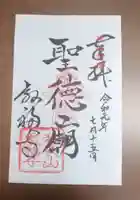 奉拝
令和元年
七月十五日
聖徳廟
叡福寺